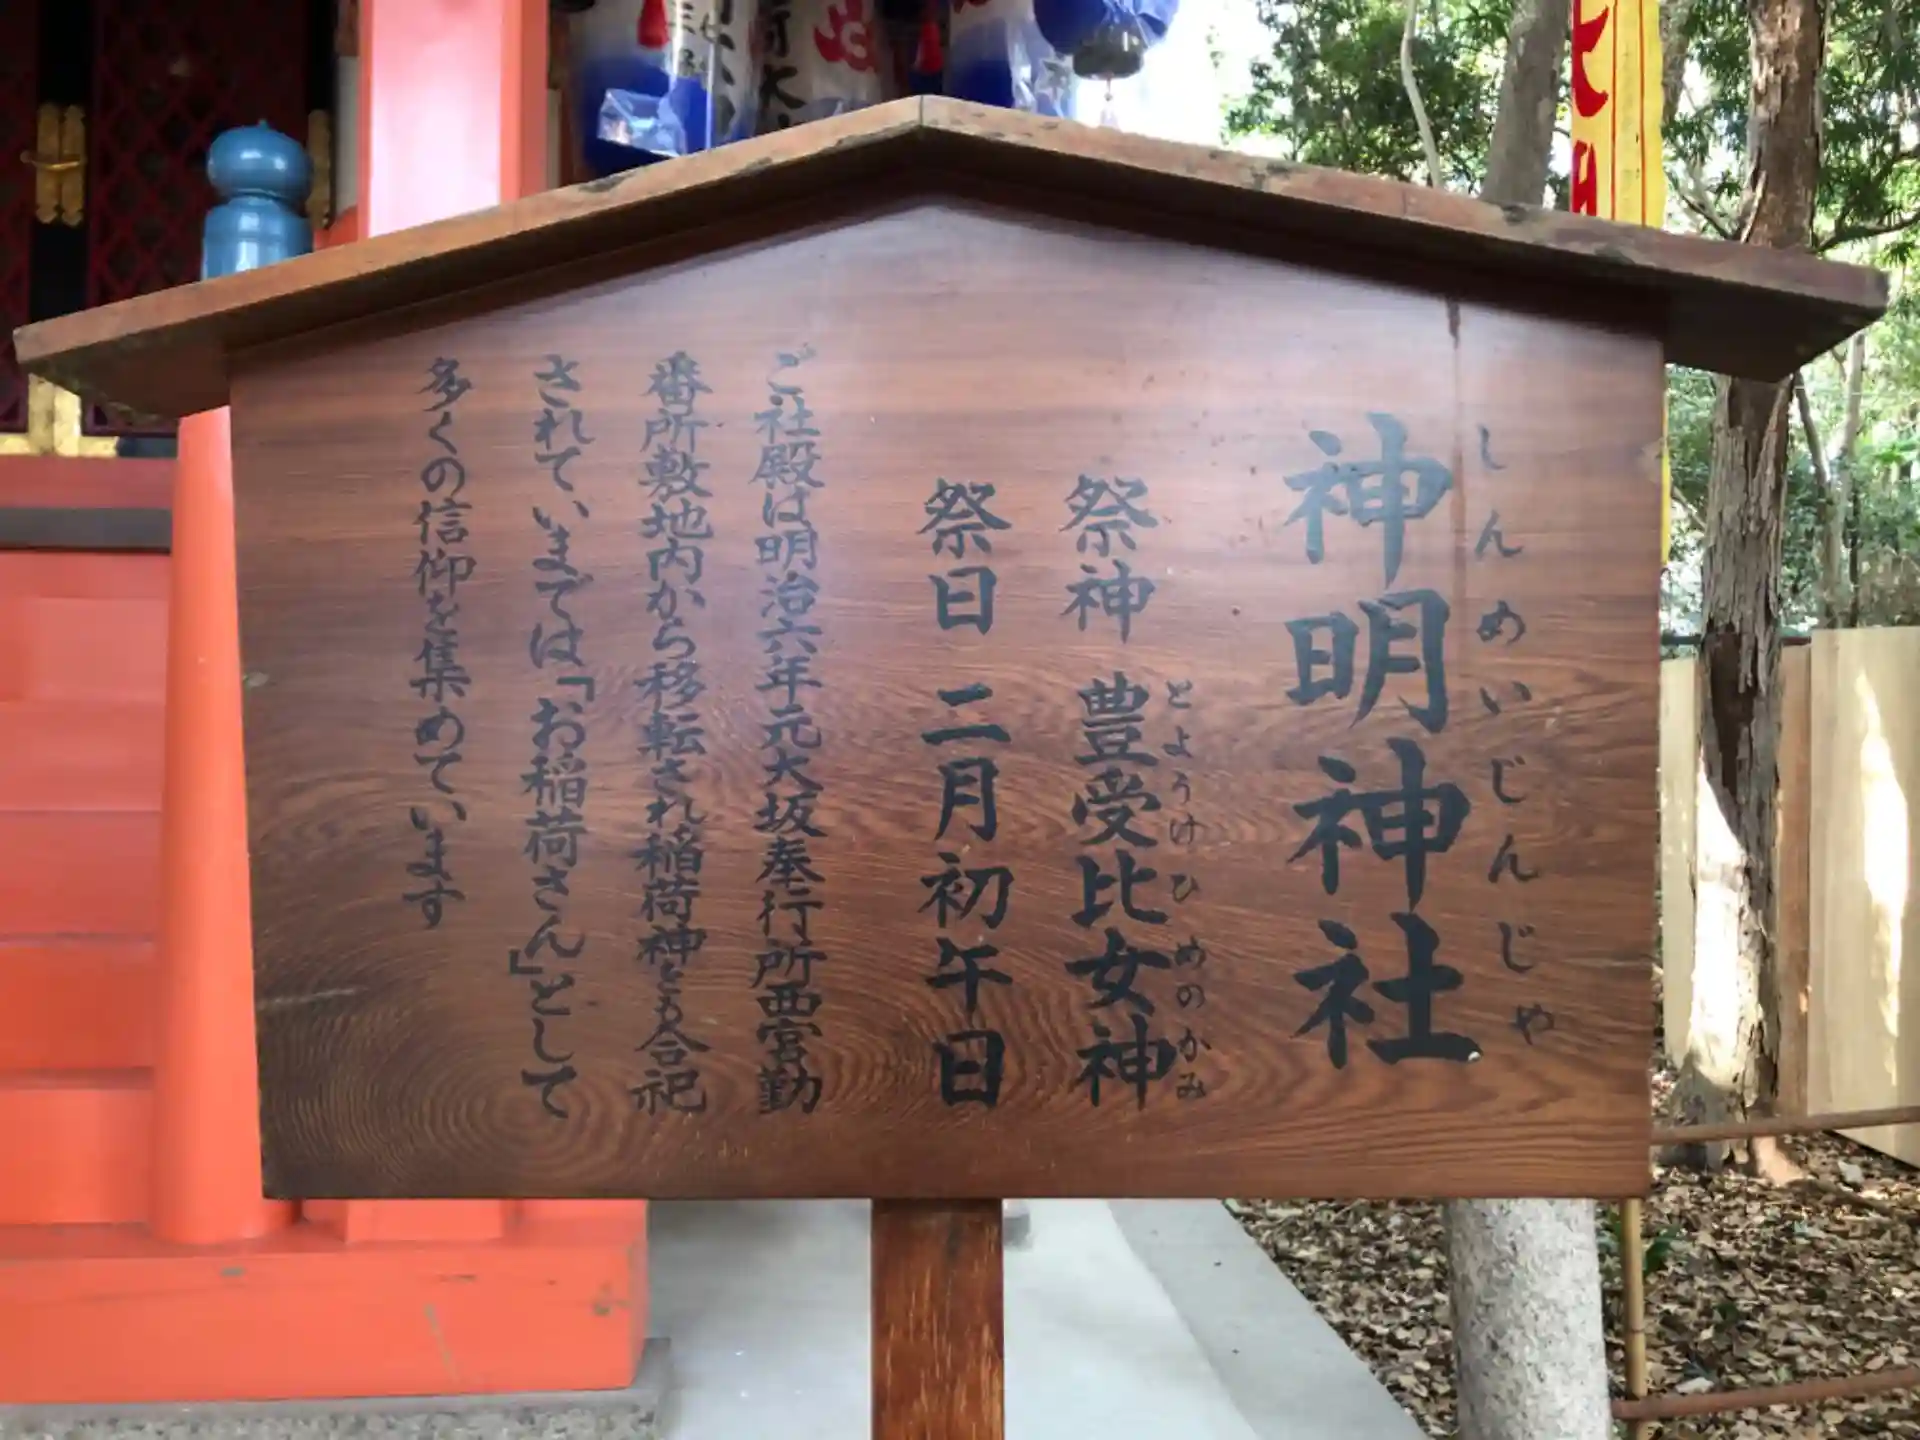 しんめいじんじゃ
神明神社
とようけひめのかみ
祭神 豊受比女神
祭日 二月初午日
ご社殿は明治六年元大坂奉行所西宮勤
番所敷地内から移転され稲荷神とも合祀
されていまでは「お稲荷さん」として
多くの信仰を集めています